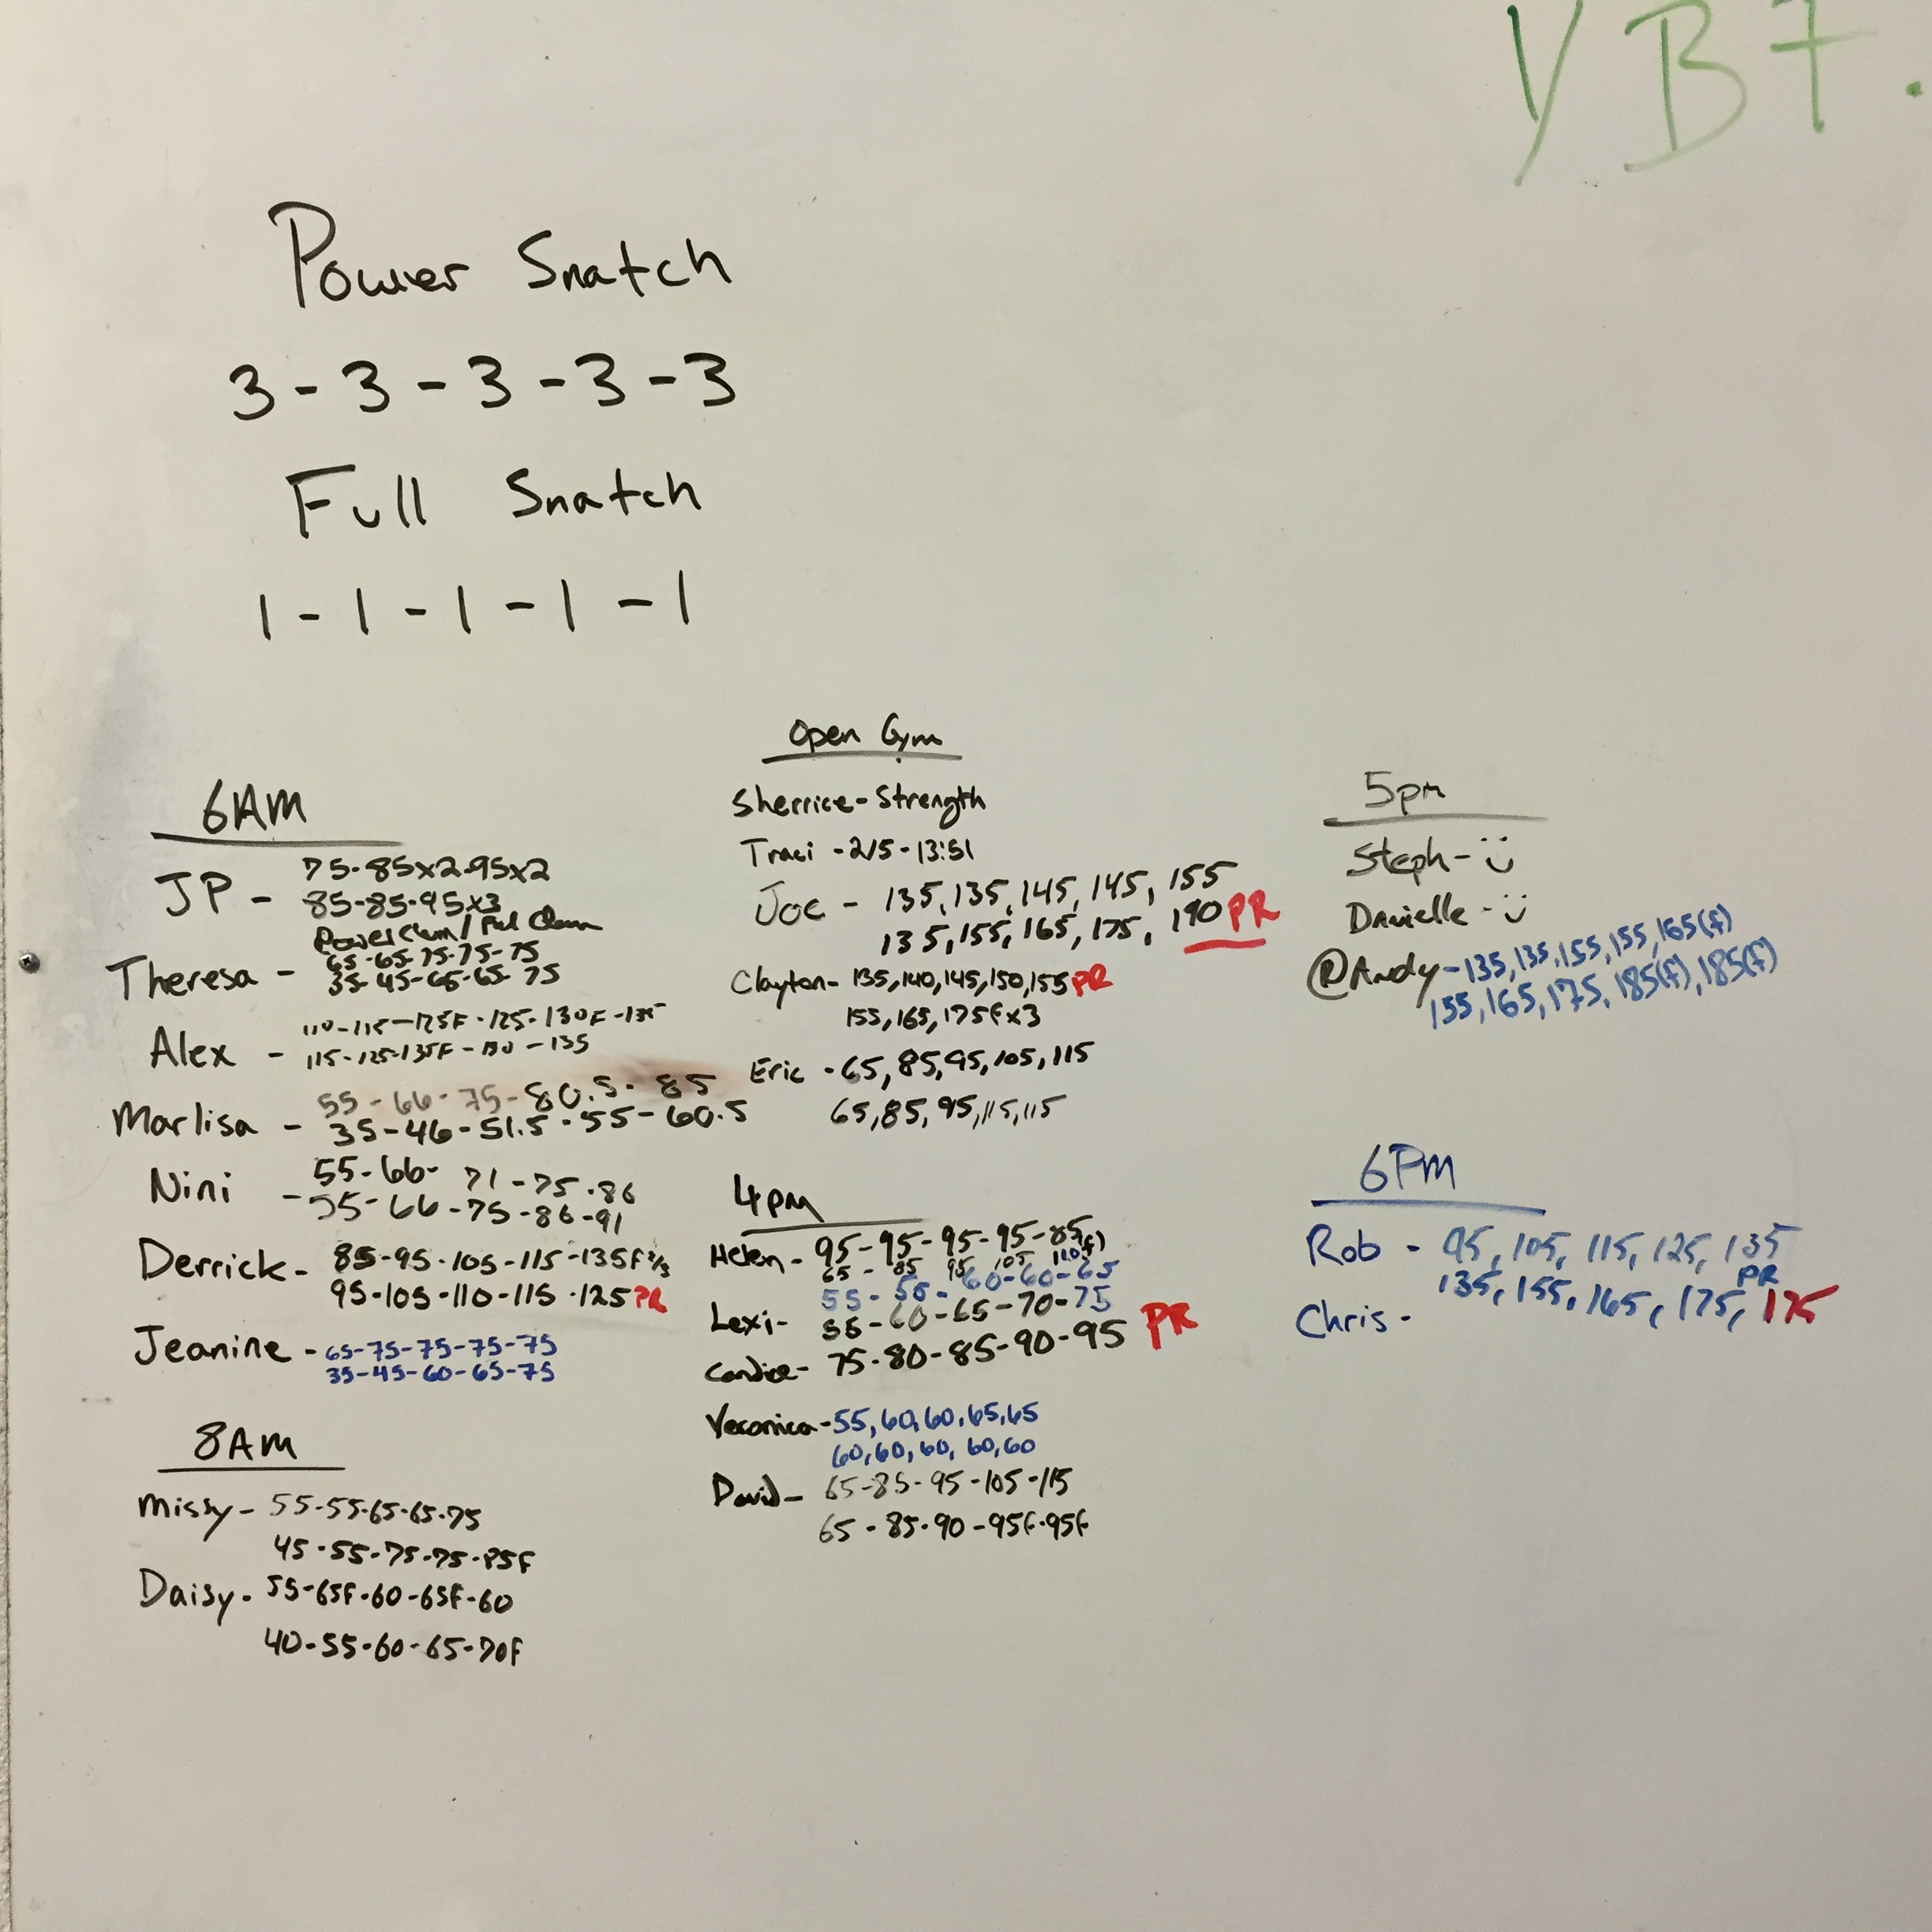 YB7.
Power Snatch
3-3-3-3-3
Full Snatch
1-1-1-1-1
6AM
JP - 75-85x2-95x2
85-85-95x3
Power Clean/Full Clean
Theresa - 65-65-75-75-75
35-45-65-65-75
Alex - 110-115-125F-125-130F-135
115-125-135F-130-135
Marlisa - 55-66-75-80.5-85
35-46-51.5-55-60.5
Nini - 55-66-71-75-86
55-66-75-86-91
Derrick - 85-95-105-115-135F 2/3
95-105-110-115-125 PR
Jeanine - 65-75-75-75-75
35-45-60-65-75
8AM
Missy - 55-55-65-65-75
45-55-75-75-85F
Daisy - 55-65F-60-65F-60
40-55-60-65-70F
Open Gym
Sherrice - Strength
Traci - 2/5 - 13:51
Joe - 135, 135, 145, 145, 155
135, 155, 165, 175, 190 PR
Clayton - 135, 140, 145, 150, 155 PR
155, 165, 175fx3
Eric - 65, 85, 95, 105, 115
65, 85, 95, 115, 115
4pm
Helen - 95-95-95-95-85(f)
65-85 95 105 110(f)
55-55-60-60-65
Lexi - 55-60-65-70-75
Candice - 75-80-85-90-95 PR
Veronica - 55, 60, 60, 65, 65
60, 60, 60, 60, 60
David - 65-85-95-105-115
65-85-90-95f-95f
5pm
Steph - ü
Danielle - ü
@Andy - 135, 135, 155, 155, 165(f)
155, 165, 175, 185(f), 185(f)
6PM
Rob - 95, 105, 115, 125, 135
PR
Chris - 135, 155, 165, 175, 175